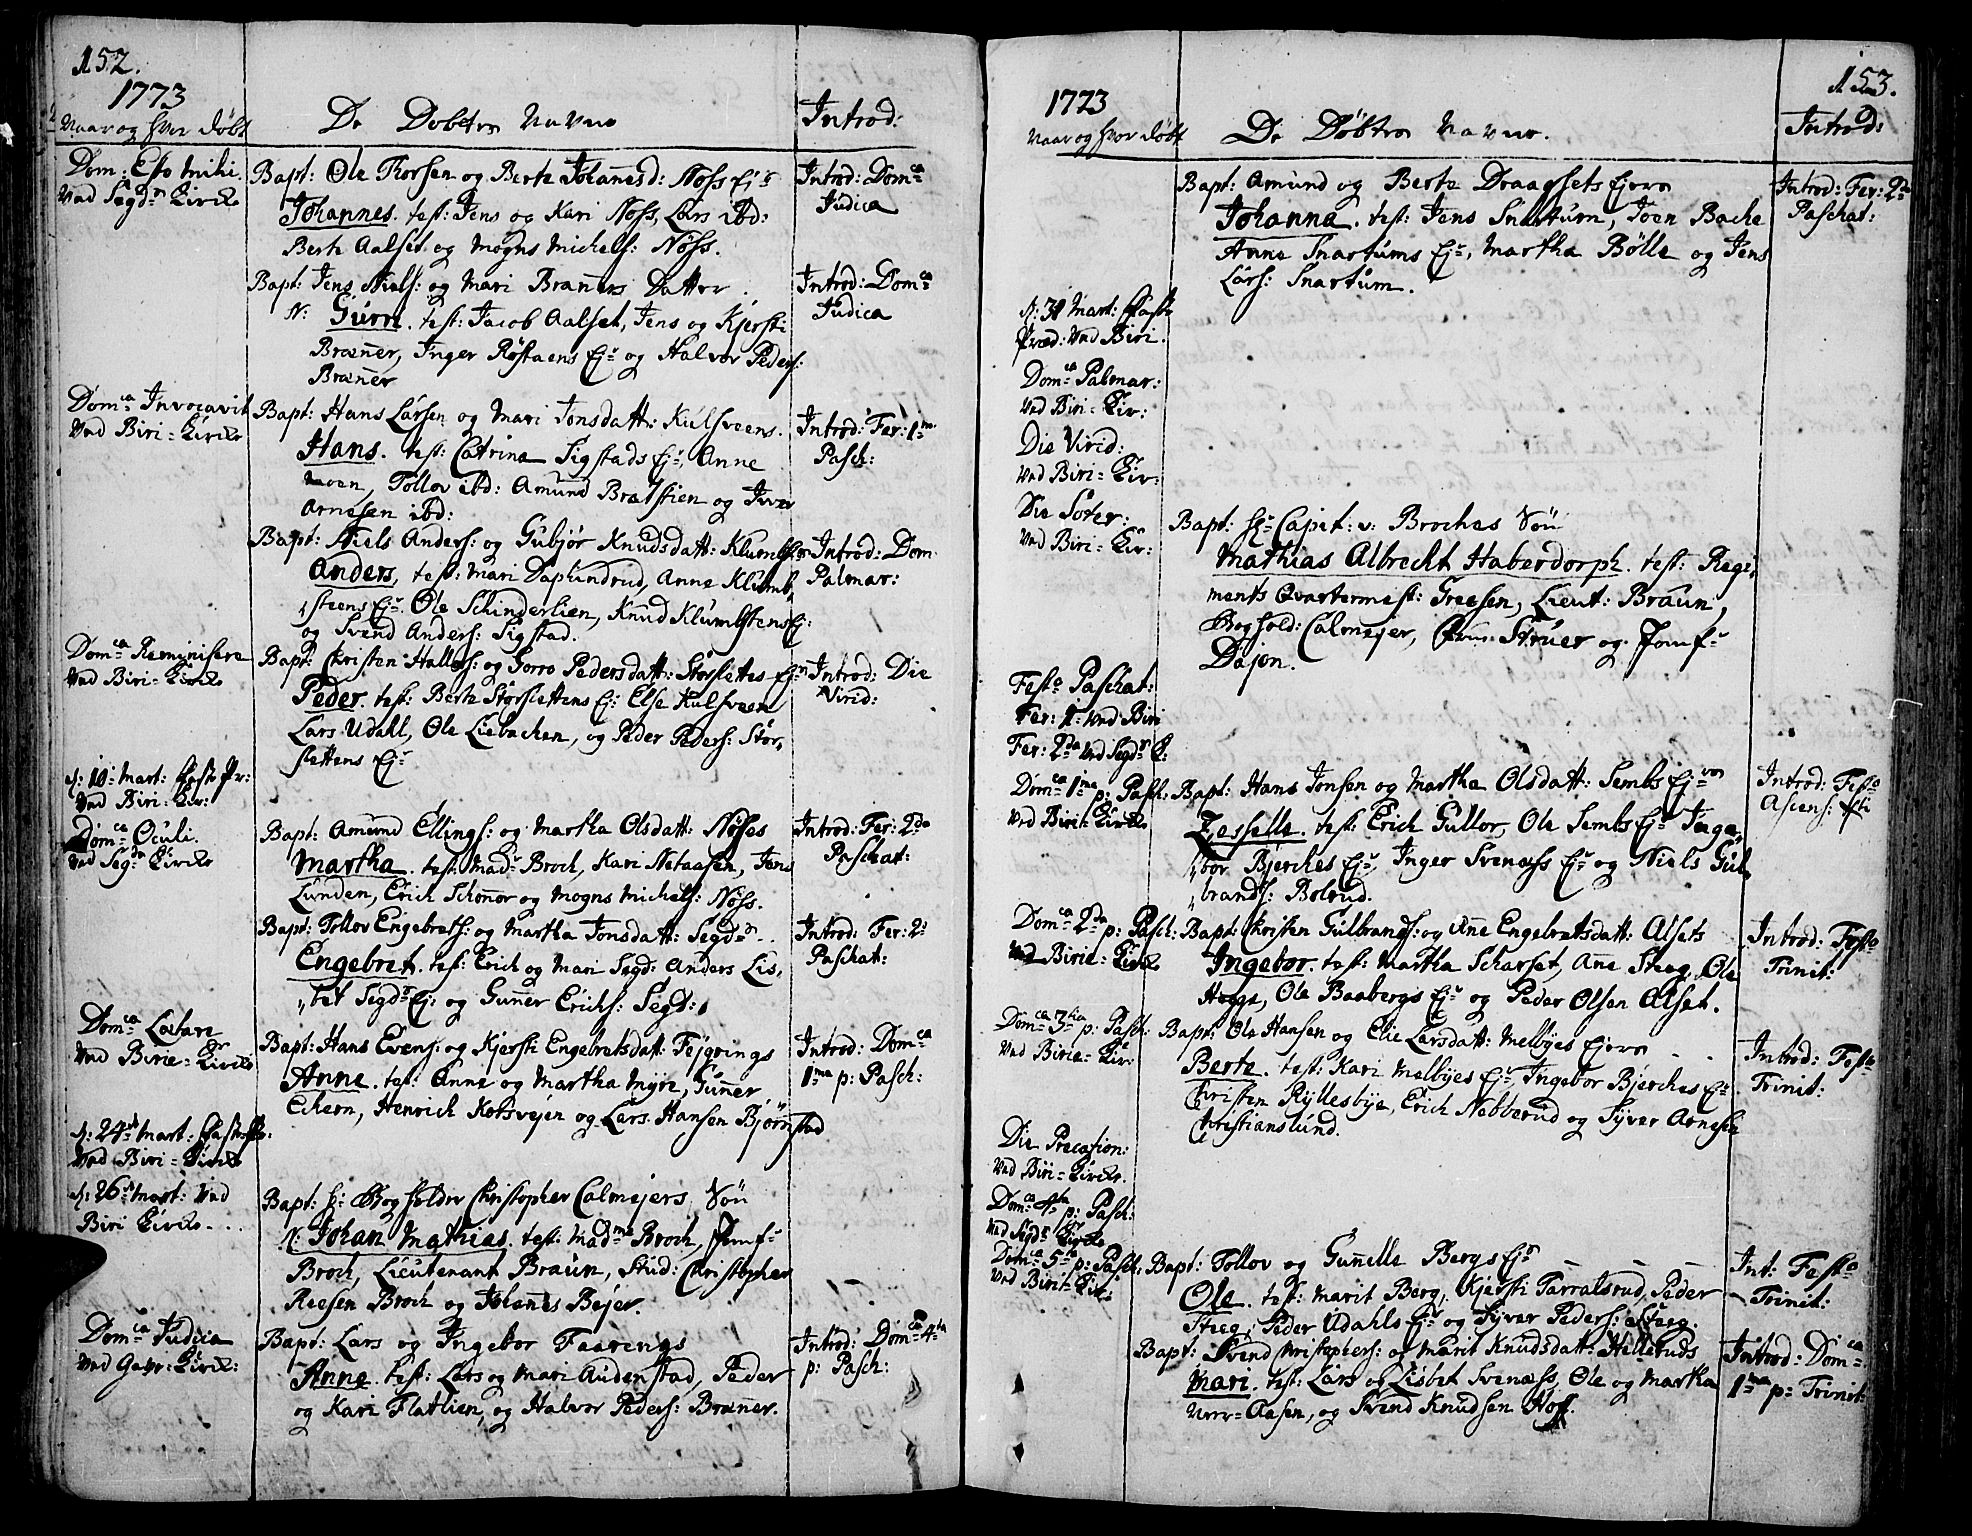 152.
1773
Naar og hvor døbt
De Døbtes Navne
Introd:
Dom: Esto Mihi
Ved Segd. Kircke
Bapt: Ole Thorsen og Berte Johannesd: Nøss Ejr
Johannes. test: Jens og Kari Nøss, Lars ibd:
Berte Aalset og Mogns Michels: Nøss.
Introd: Domca
Judica
Bapt: Jens Niels: og Mari Braners Datter
N: Guru. test: Jacob Aalset, Jens og Kjersti
Braner, Inger Røstaens Ejr og Halvor Peders:
Braner
Introd: Domca
Judica
Domca Invocavit
Ved Biri-Kircke
Bapt: Hans Larsen og Mari Jonsdatt: Kulsveens.
Hans. test: Catrina Sigstads Ejr, Anne
Moen, Tollov ibd: Amund Bratstien og Iver
Arnesen ibd:
Introd: Fer: 1ma
Pasch:
Bapt: Niels Anders: og Gubjør Knudsdatt: Klumbsten
Anders, test: Mari Daplindrud, Anne Klumb,
steens Ejr. Ole Schinderlien, Knud Klumbstens Ej:
og Svend Anders: Sigstad.
Introd: Dom.
Palmar:
Domca Reminiscere
Ved Biri-Kircke
Bapt: Christen Halvors: og Gorro Pedersdatt: Storslettes Ejrn
Peder. test: Berte Storslettens Ej: Else Kulsveen
Lars Udahl, Ole Liebachen, og Peder Peders: Stor,
slettens Ejr
Introd: Die
Virid:
d: 10 Mart: Faste Pr:
Ved Biri-Kir:
Domca Oculi
Ved Segdn Kircke
Bapt: Amund Ellings: og Martha Olsdatt: Nøsses
Martha. test: Madr Broch, Kari Netaasen, Jens
Lunden, Erich Schonor og Mogns Michels: Nøss.
Introd: Fer: 2da
Paschat:
Bapt: Tollov Engebrets: og Martha Jonsdatt: Segdn
Engebret. test: Erich og Mari Segd: Anders Lis,
tet Segdn Ej: og Gunner Erichs: Segd:
Introd: Fer: 2d
Paschat:
Domca Lætare
Ved Birie-Kircke
Bapt: Hans Evens: og Kjersti Engebretsdatt: Fejgrings
Anne. test: Anne og Martha Myre, Gunner
Echern, Henrich Kotsvejen og Lars Hansen Bjørnstad
Introd: Domca
1ma p: Pasch:
d: 24de Mart: Faste Pr.
Ved Biri-Kircke
d: 26de Mart: Ved
Biri Kircke
Bapt: Hr Bogholder Christopher Calmejers Søn
N: Johan Mathias. test: Madme Broch, Jomfr
Broch, Lieutenant Braun, Stud: Christopher
Reesen Broch og Johannes Bejer.
Domca Judica
Ved Gavr-Kirck:
Bapt: Lars og Ingebor Faarengs
Anne. test: Lars og Mari Audenstad, Peder
og Kari Flatlien, og Halvor Peders: Braner.
Introd: Domca 4ta
p: Pasch:
153.
1773
Naar og hvor døbt
De Døbtes Navne.
Introd:
Bapt: Amund og Berte Draagsets Ejern
Johanna. test: Jens Snartum, Joen Bache
Anne Snartums Ejr, Martha Bølle og Jens
Lars: Snartum.
Introd: Fer: 2da
Paschat:
d: 31 Mart: Faste
Præd: Ved Biri.
Domca Palmar:
Ved Biri-Kir:
Die Virid:
Ved Biri-Kir:
Die Soter:
Ved Biri-Kir:
Bapt: Hr Capit: v: Broches Søn
Mathias Albrecht Haberdorph. test: Regi,
ments Qvartermest: Greesen, Lieut: Braun,
Boghold: Calmejer, Struer og Jomfr
Dajon.
Festo Paschat:
Fer: 1. Ved Biri
Fer: 2da Ved Segdn K:
Domca 1ma p: Pasch:
Ved Biri-Kircke
Bapt: Hans Jonsen og Martha Olsdatt: Sembs Ejrn
Zesselle. test: Erich Gullor, Ole Sembs Ejr Inge,
bor Bjerches Ejr, Inger Svenæss Ejr og Niels Gul,
brands: Bolrud.
Introd: Festo
Ascens:
Domca 2da p: Pasch:
Ved Birie-Kircke
Bapt: Christen Gulbrands: og Ane Engebretsdatt: Alsets
Ingebor. test: Martha Scharset, Ane Steeg, Ole
Hogge, Ole Baabergs Ejr og Peder Olsen Alset.
Introd: Festo
Trinit:
Domca 3tia p: Pasch:
Ved Birie-Kir:
Bapt: Ole Hansen og Elie Larsdatt: Melbyes Ejern
Berte. test: Kari Melbyes Ejr, Ingebor Bjerches Ejr
Christen Ryllesbye, Erich Nebberud og Syver Arnesen
Christianslund.
Introd: Festo
Trinit:
Die Precation:
Ved Biri-Kircke.
Domca 4ta p: Pasch:
Ved Segdn Kircke
Domca 5ta p: Pasch:
Ved Biri-Kir:
Bapt: Tollov og Gunelle Bergs Ejr
Ole. test: Marit Berg, Kjersti Tarratsrud, Peder
Steeg, Peder Udahls Ejr og Syver Peders: Steeg.
Int: Festo
Trinit:
Bapt: Svend Christophers: og Marit Knudsdatt: Helleruds
Mari. test: Lars og Lisbet Svenæss, Ole og Martha
Aasen, og Svend Knudsen Hoff.
Introd: Domca
1ma p: Trinit: